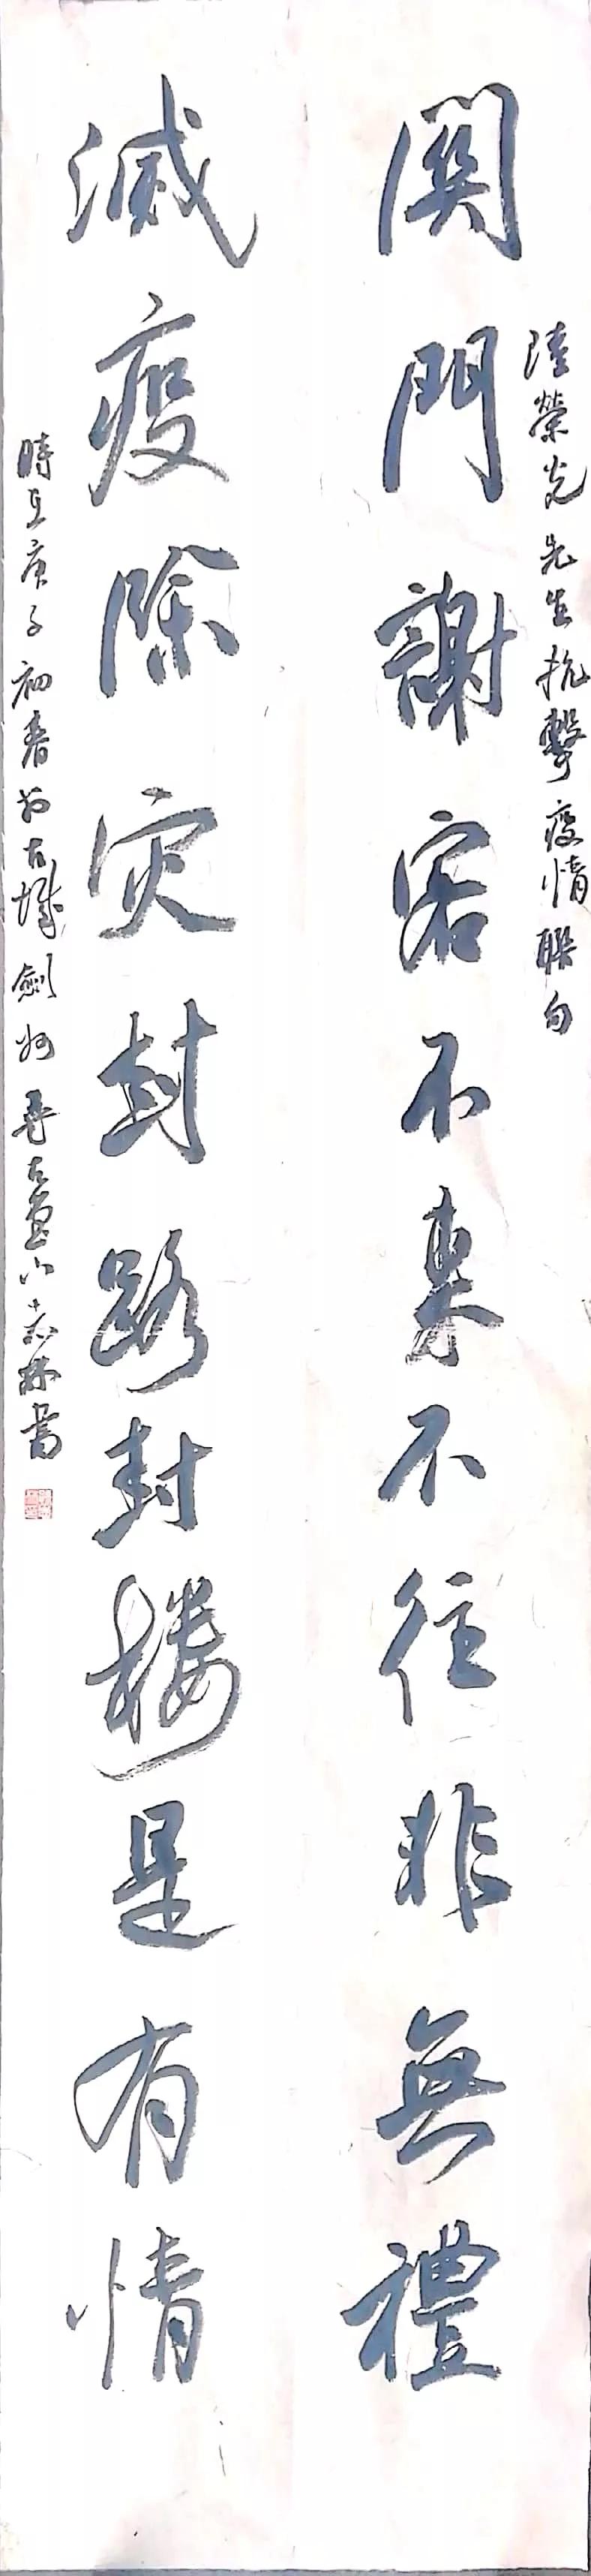 陸榮光先生抗擊疫情聯句
關門謝客不來不往非無禮
滅疫除灾封路封樓是有情
時在庚子初春於古城劍州 古 志林書